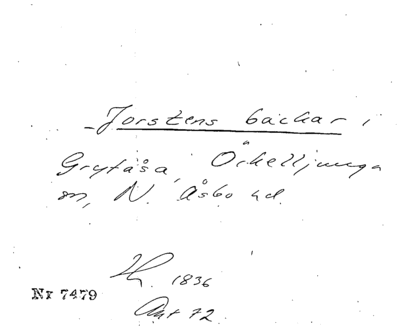 Jorstens backar i
Grytåsa, Örkelljunga
sn, N. Åsbo hd.
1836
Nr 7479
Ant 72.